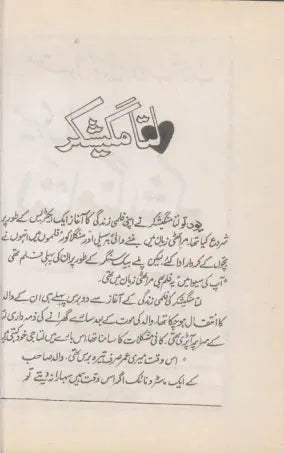 لتا منگیشکر
لتا منگیشکر نے اپنی فلمی زندگی کا آغاز ایک ایکٹریس کے طور پر
شروع کیا تھا۔ مراٹھی زبان میں بننے والی اور منگلا گور فلموں میں انہوں نے
بچوں کے کردار ادا کئے لیکن پلے بیک سنگر کے طور پر ان کی پہلی فلم تھی
"آپ کی سیوا میں" یہ فلم بھی مراٹھی زبان میں تھی۔
لتا منگیشکر کی فلمی زندگی کے آغاز سے دو برس پہلے ہی ان کے والد
کا انتقال ہو چکا تھا۔ والد کی موت کے بعد سارے گھرانے کی ذمہ داری لتا
کے سر پر آ پڑی تھی۔ کافی مشکلات کا سامنا تھا۔ اس بارے میں لتا جی خود کہتی ہیں
"اس وقت میری عمر صرف تیرہ برس تھی۔ والد صاحب
کے ایک اگر اس وقت ہمیں سہارا نہ دیتے تو